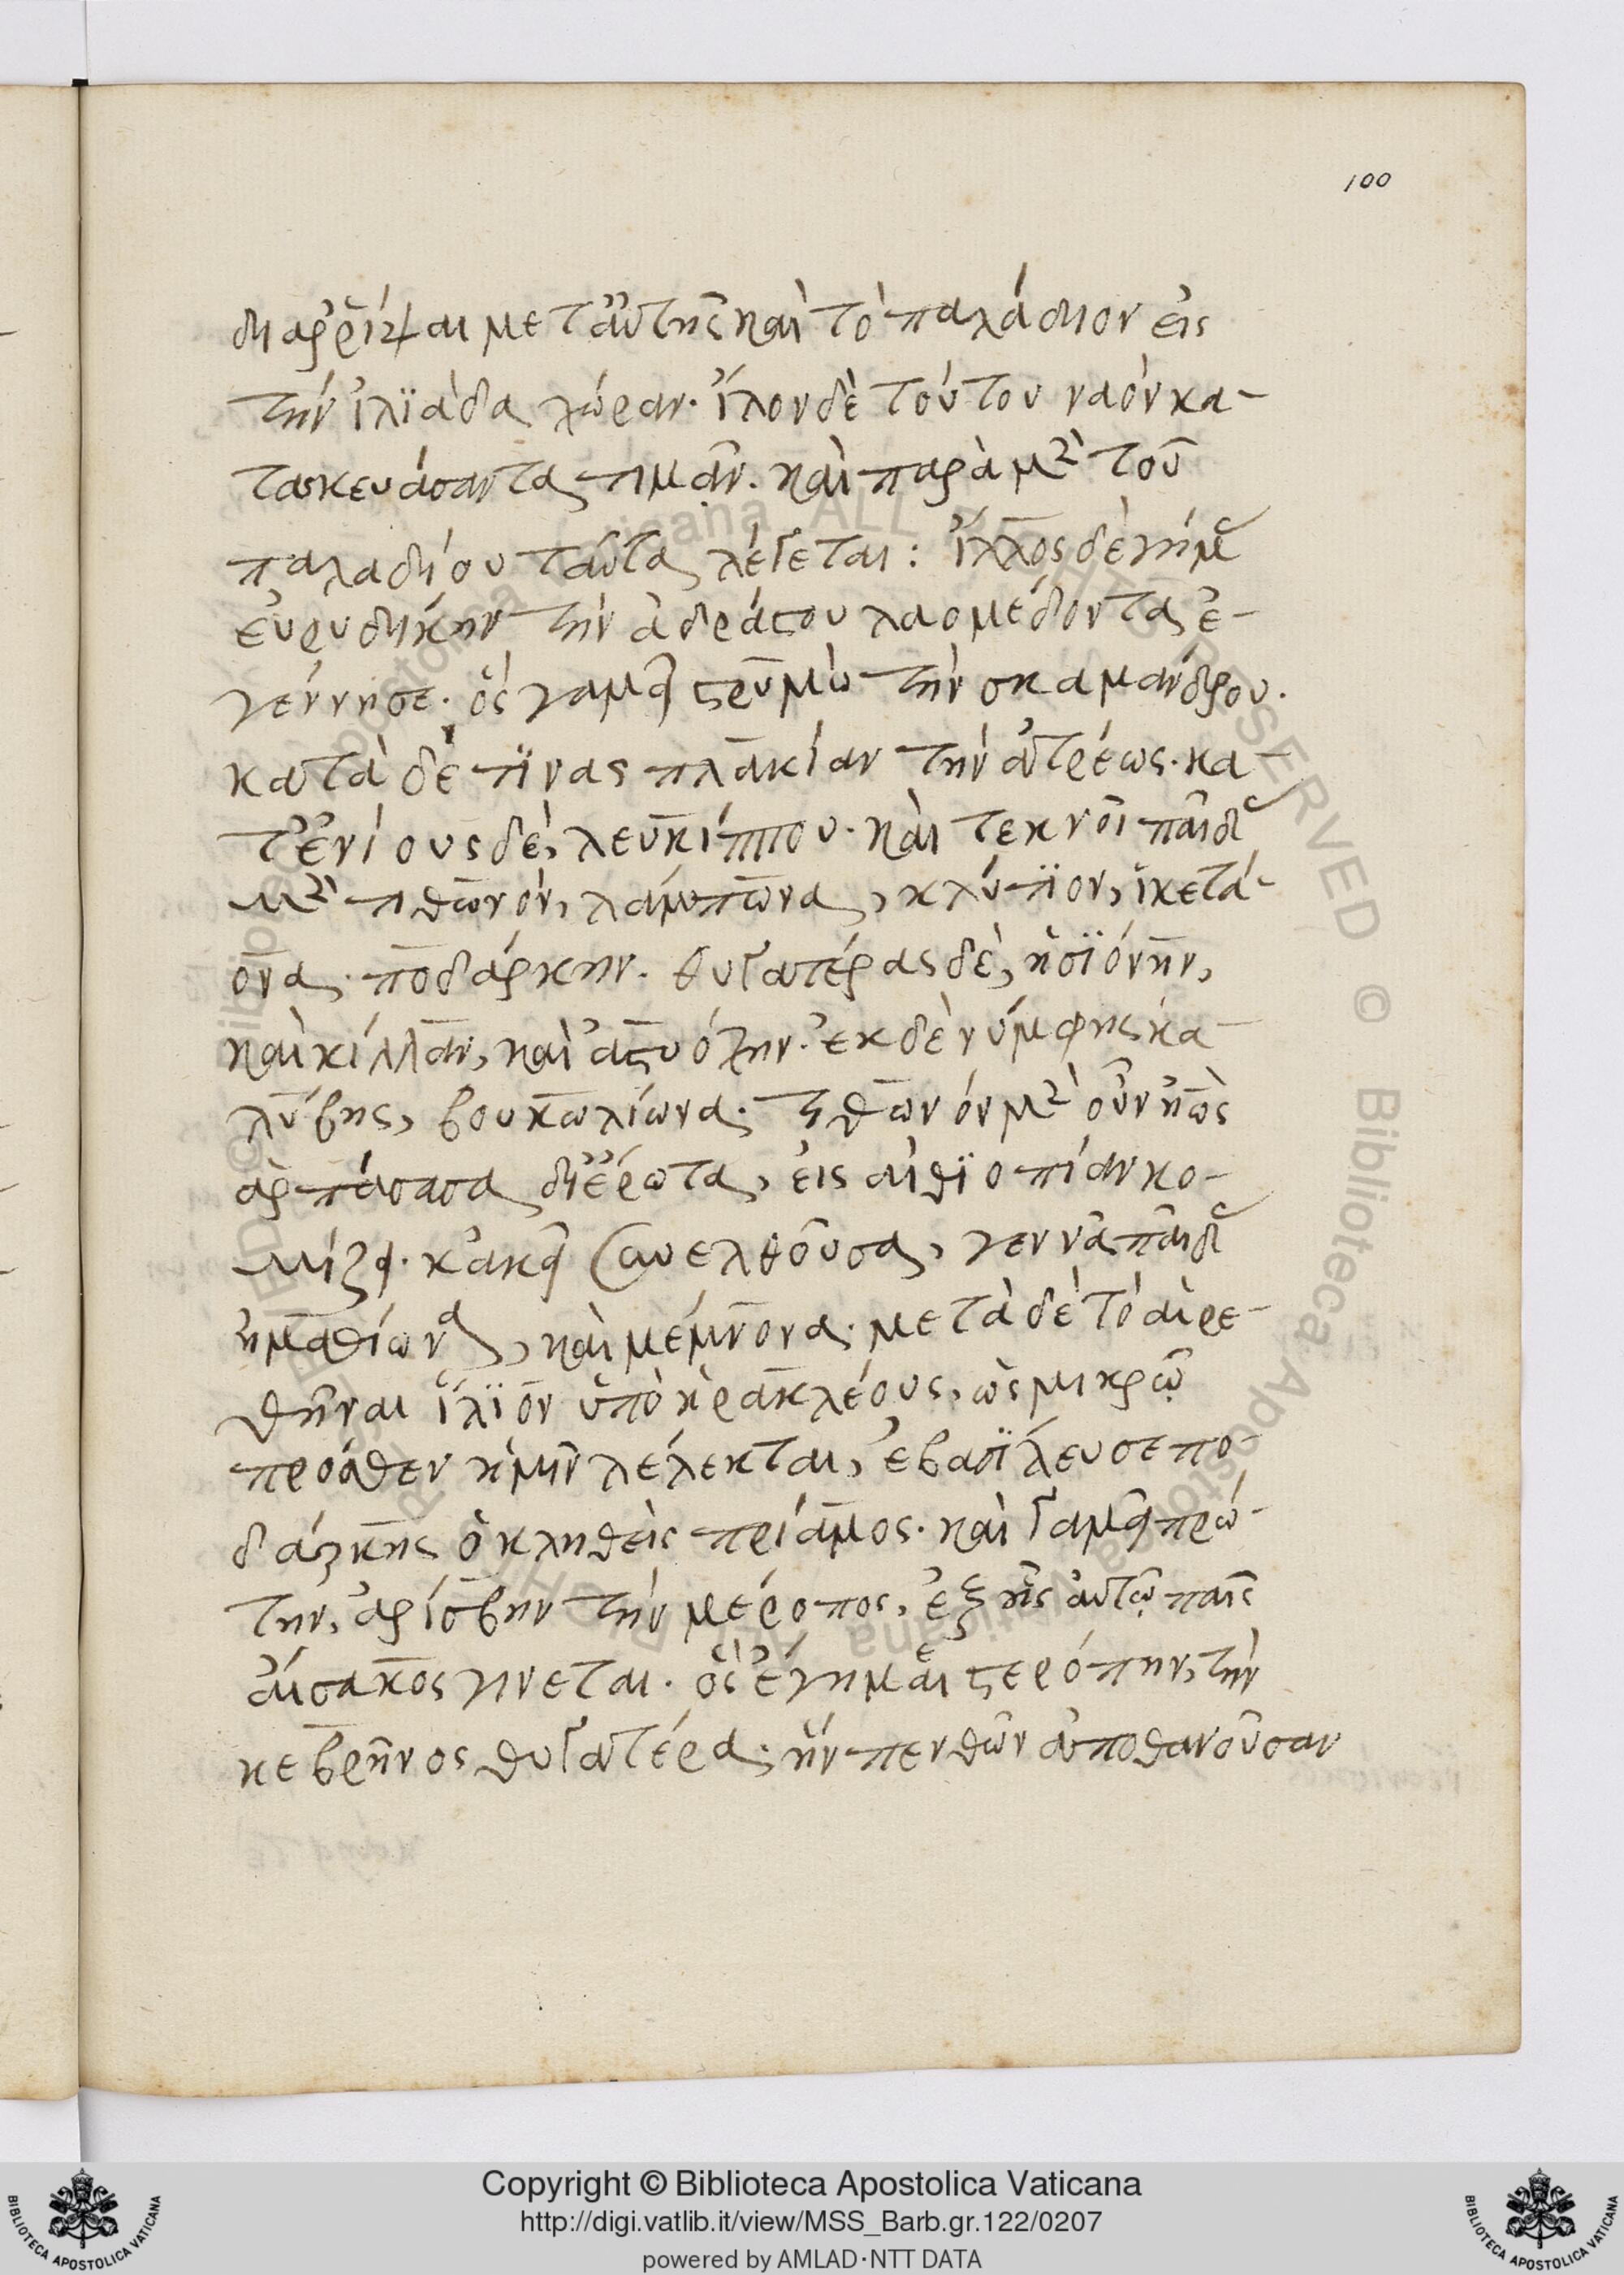 100
διαῤῥίψαι μετ αὐτῆς καὶ τὸ παλάδιον εἰς
τὴν ἰλϊάδα χώραν. ἴλον δὲ τούτου ναὸν κα-
τασκευάσαντα τιμᾶν. καὶ παρὰ μὲν τοῦ
παλαδίου ταῦτα λέγεται: ἴλλος δὲ γήμας
εὐρυδίκην τὴν ἀδράστου λαομέδοντα ἐ-
γέννησε. ὃς γαμεῖ στρυμὼ τὴν σκαμάνδρου.
κατὰ δὲ τϊνας πλακίαν τὴν ἀτρέως. κα-
τ' ἐνίους δὲ, λευκίππου. καὶ τεκνοῖ παῖδας
μὲν τιθωνὸν, λάμπωνα, κλύτϊον, ἱκετά-
ονα. ποδάρκην. θυγατέρας δὲ, ἡσϊόνην,
καὶ κίλλαν, καὶ ἀστυόχην. ἐκ δὲ νύμφης κα-
λύβης, βουκωλίωνα. τιθωνὸν μὲν οὖν ἠὼς
ἁρπάσασα δι' ἔρωτα, εἰς αἰθϊοπίαν κο-
μίζει. κἀκεῖ συνελθοῦσα, γεννᾶ παῖδας
ἠμαθίωνα, καὶ μέμνονα. μετὰ δὲ τὸ αἱρε-
θῆναι ἴλϊον ὑπὸ ἡρακλέους, ὡς μικρῷ
πρόσθεν ἡμῖν λέλεκται, ἐβασϊλευσε πο-
δάρκης ὁ κληθεὶς πρίαμος. καὶ γαμεῖ πρώ-
την, ἀρίσβην τὴν μέροπος, ἐξ ἧς αὐτῷ παῖς
αἴσακος γινεται. ὃς ἔγημεν ἀστερόπην, τὴν
κεβρῆνος θυγατέρα. ἣν πενθῶν ἀποθανοῦσαν
Copyright © Biblioteca Apostolica Vaticana
http://digi.vatlib.it/view/MSS_Barb.gr.122/0207
powered by AMLAD·NTT DATA
BIBLIOTECA APOSTOLICA VATICANA
BIBLIOTECA APOSTOLICA VATICANA